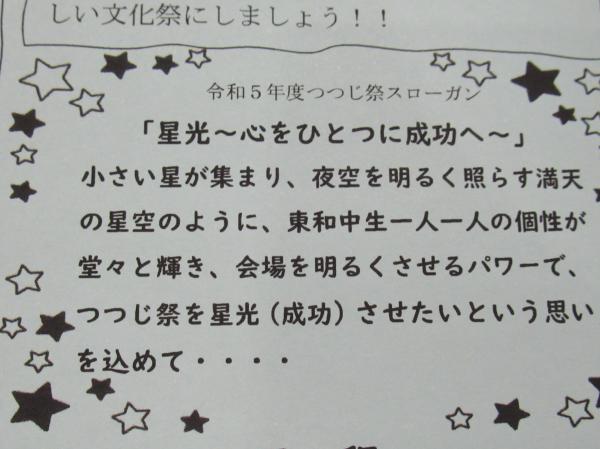 しい文化祭にしましょう！！
令和５年度つつじ祭スローガン
「星光～心をひとつに成功へ～」
小さい星が集まり、夜空を明るく照らす満天
の星空のように、東和中生一人一人の個性が
堂々と輝き、会場を明るくさせるパワーで、
つつじ祭を星光（成功）させたいという思い
を込めて・・・・